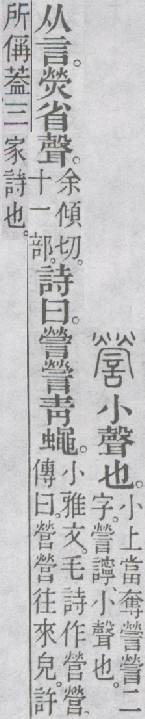 謍小聲也。
小上當奪謍謍二
字。謍謍、小聲也。
从言。熒省聲。
余傾切。
十一部。
詩曰。謍謍青蠅。
小雅文。毛詩作營營。
傳曰。營營往來皃。許
所偁葢三家詩也。